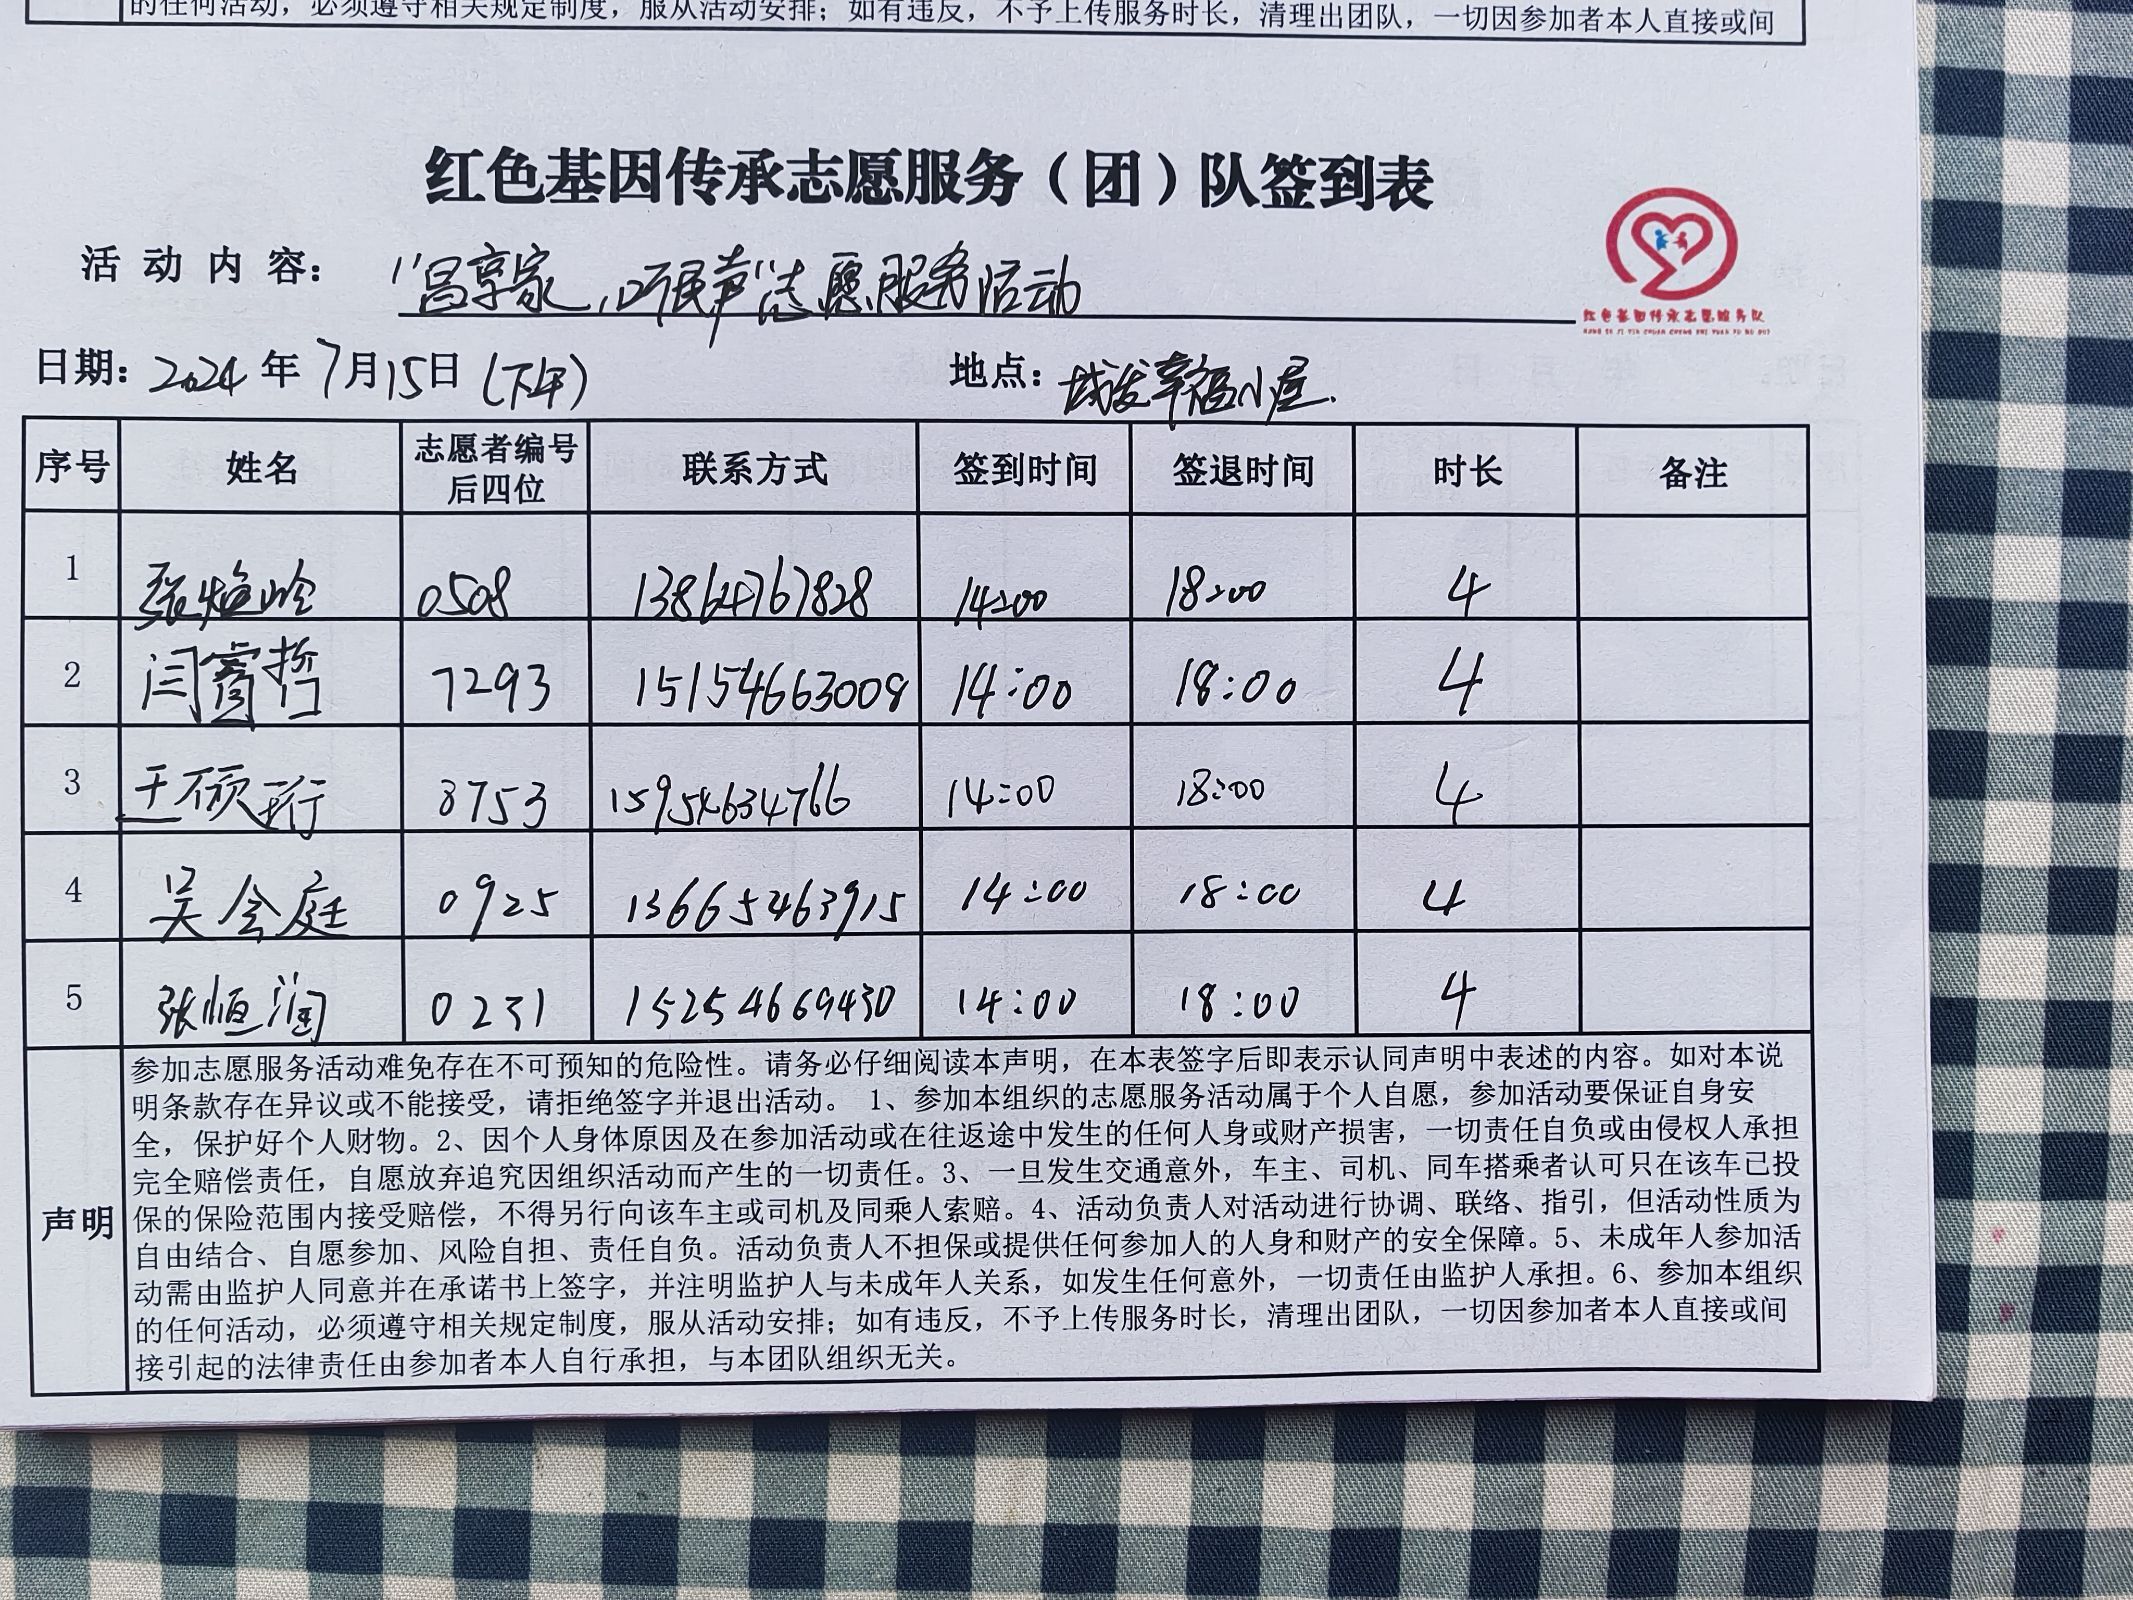 的任何活动，必须遵守相关规定制度，服从活动安排；如有违反，不予上传服务时长，清理出团队，一切因参加者本人直接或间
红色基因传承志愿服务（团）队签到表
活动内容： "昌享家，听民声"志愿服务活动
红色基因传承志愿服务队
HONG SE JI YIN CHUAN CHENG ZHI YUAN FU WU DUI
日期：2024年7月15日（下午） 地点：城发幸福小屋.
序号 姓名 志愿者编号后四位 联系方式 签到时间 签退时间 时长 备注
1 张焓岭 0508 13864767828 14:00 18:00 4
2 闫睿哲 7293 15154663009 14:00 18:00 4
3 王硕珩 8753 15954634766 14:00 18:00 4
4 吴会庭 0925 13665463915 14:00 18:00 4
5 张恒润 0231 15254669430 14:00 18:00 4
声明
参加志愿服务活动难免存在不可预知的危险性。请务必仔细阅读本声明，在本表签字后即表示认同声明中表述的内容。如对本说
明条款存在异议或不能接受，请拒绝签字并退出活动。 1、参加本组织的志愿服务活动属于个人自愿，参加活动要保证自身安
全，保护好个人财物。2、因个人身体原因及在参加活动或在往返途中发生的任何人身或财产损害，一切责任自负或由侵权人承担
完全赔偿责任，自愿放弃追究因组织活动而产生的一切责任。3、一旦发生交通意外，车主、司机、同车搭乘者认可只在该车已投
保的保险范围内接受赔偿，不得另行向该车主或司机及同乘人索赔。4、活动负责人对活动进行协调、联络、指引，但活动性质为
自由结合、自愿参加、风险自担、责任自负。活动负责人不担保或提供任何参加人的人身和财产的安全保障。5、未成年人参加活
动需由监护人同意并在承诺书上签字，并注明监护人与未成年人关系，如发生任何意外，一切责任由监护人承担。6、参加本组织
的任何活动，必须遵守相关规定制度，服从活动安排；如有违反，不予上传服务时长，清理出团队，一切因参加者本人直接或间
接引起的法律责任由参加者本人自行承担，与本团队组织无关。